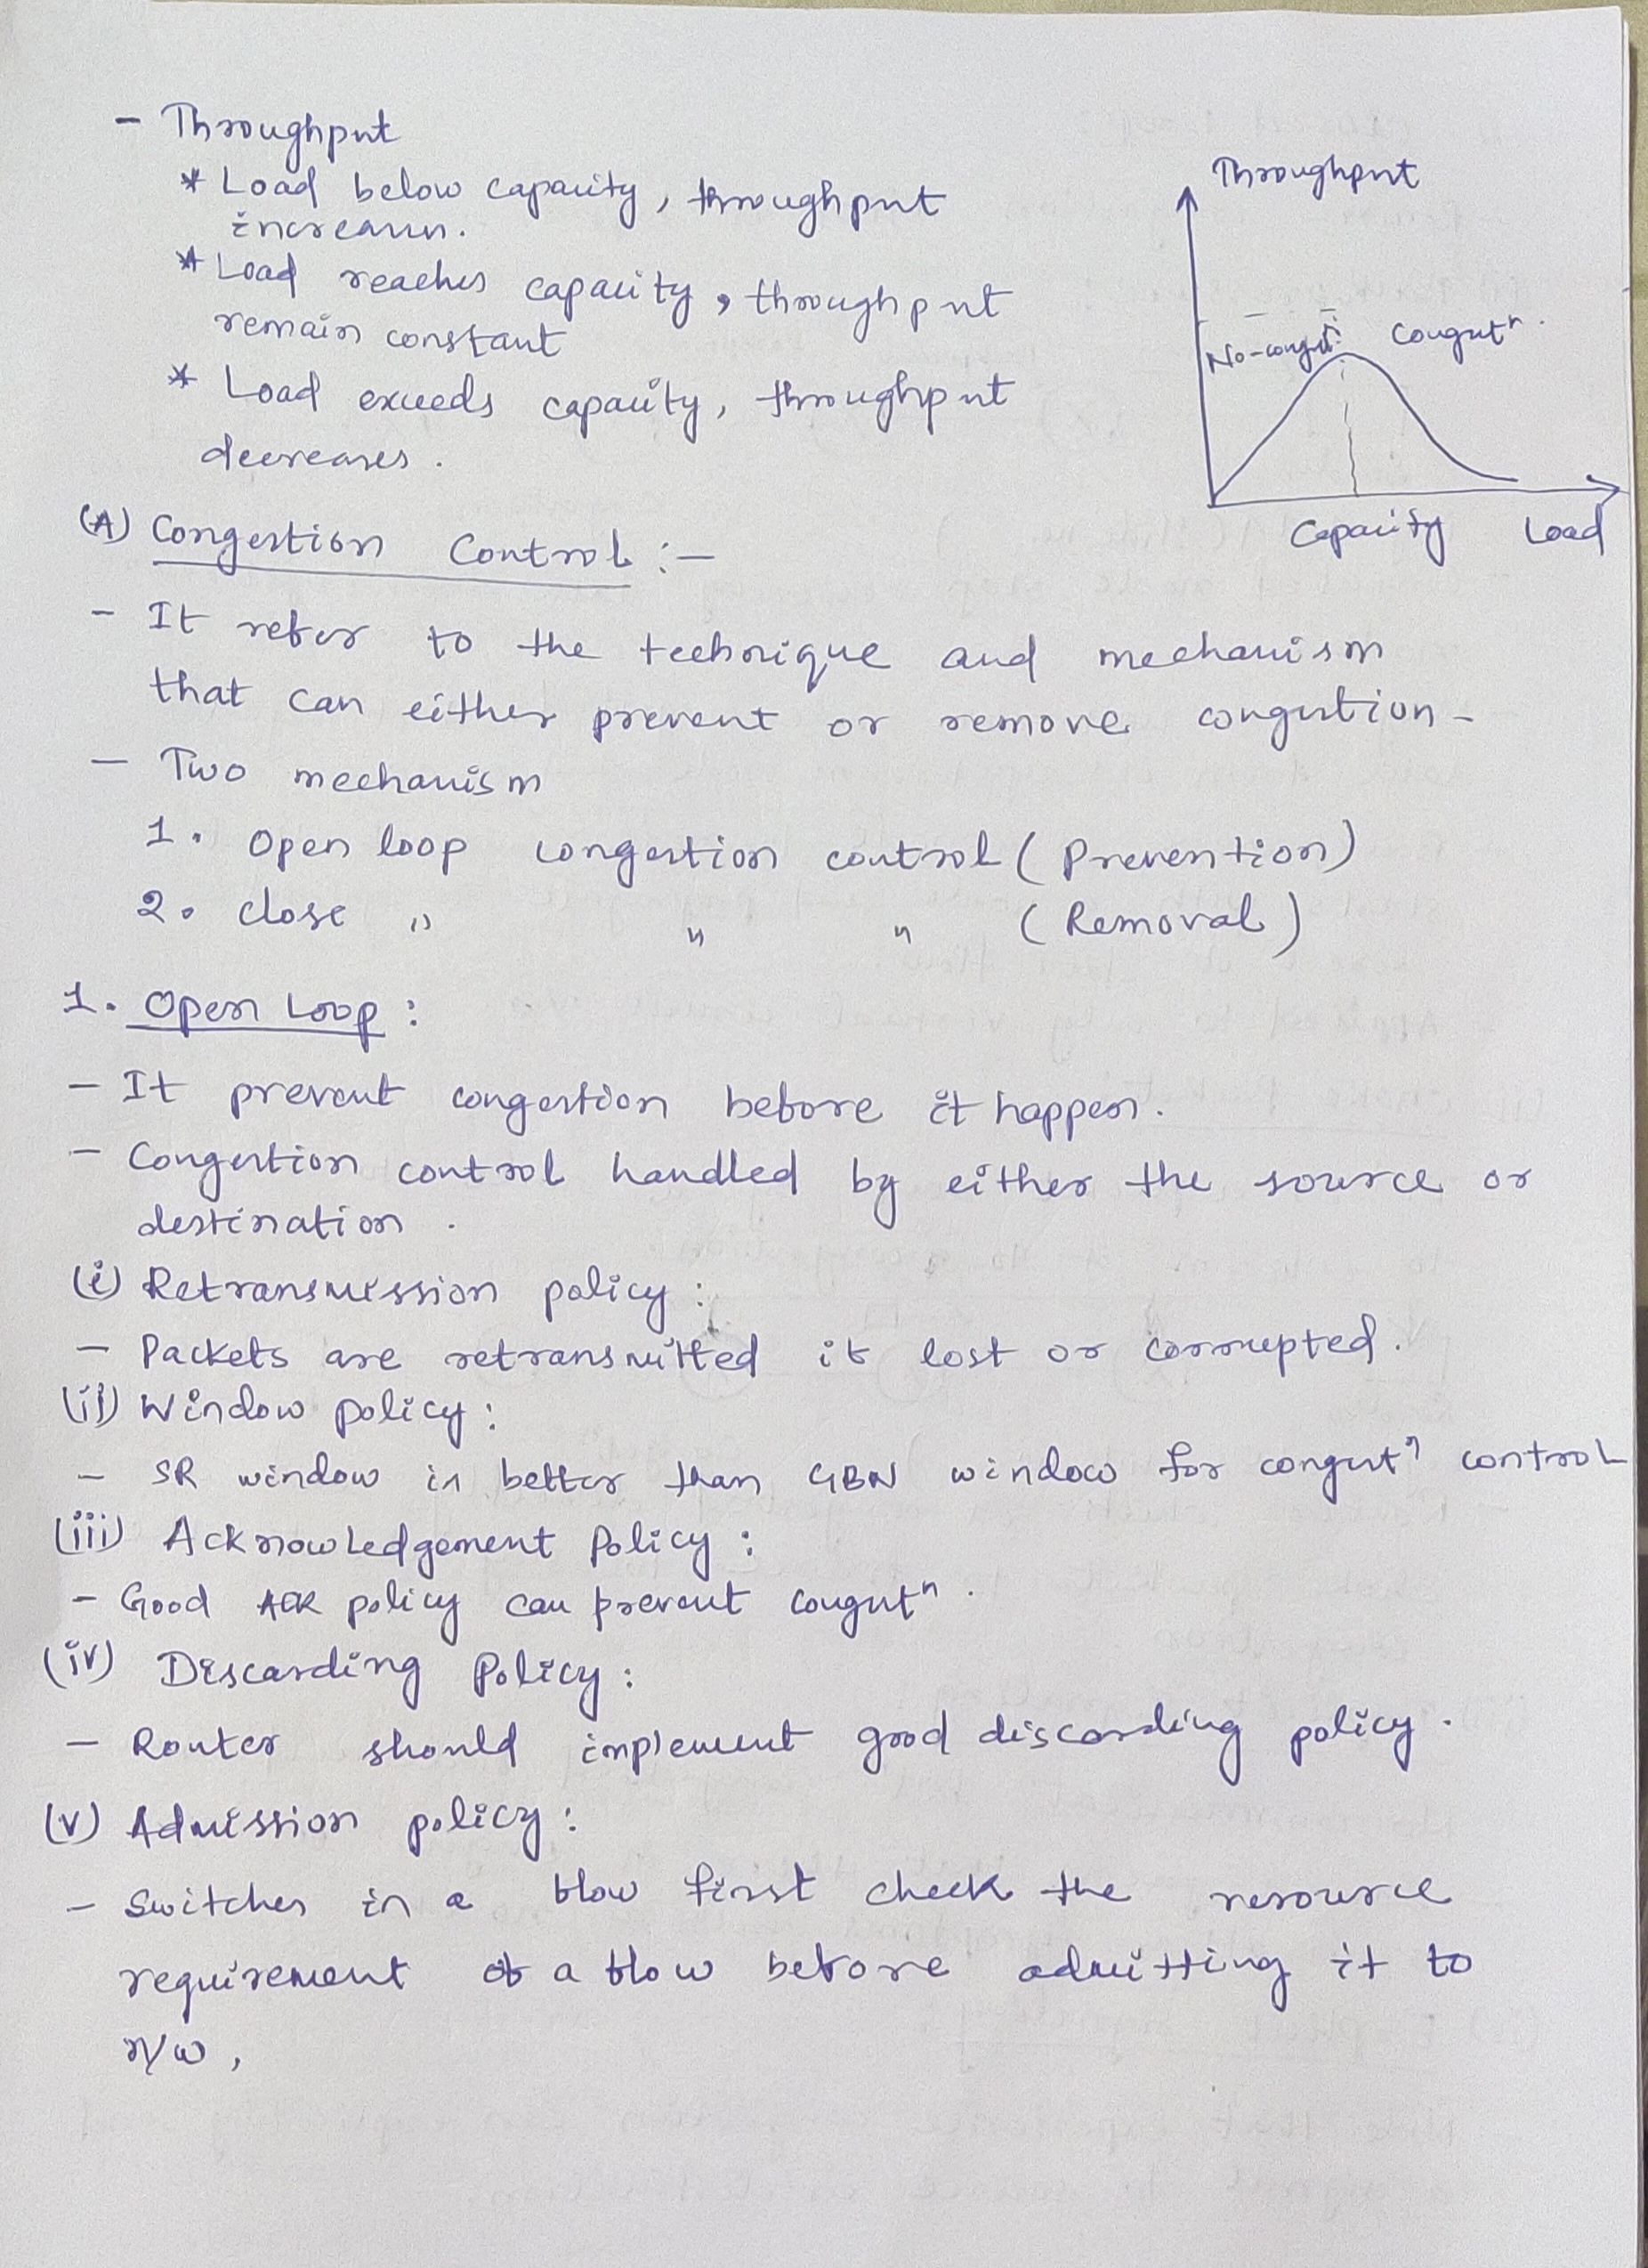 - Throughput
* Load below capacity, throughput
increases.
* Load reaches capacity, throughput
remain constant
* Load exceeds capacity, throughput
decreases.
Throughput
No-congestⁿ
Congestⁿ.
Capacity Load
(A) Congestion Control :-
- It refer to the technique and mechanism
that can either prevent or remove congestion-
- Two mechanism
1. Open loop congestion control (Prevention)
2. close " " " (Removal)
1. Open Loop :
- It prevent congestion before it happen.
- Congestion control handled by either the source or
destination.
(i) Retransmission policy :
- Packets are retransmitted if lost or corrupted.
(ii) Window policy :
- SR window is better than GBN window for congestⁿ control
(iii) Acknowledgement Policy :
- Good ACK policy can prevent congestⁿ.
(iv) Discarding Policy :
- Router should implement good discarding policy.
(v) Admission policy :
- Switches in a flow first check the resource
requirement of a flow before admitting it to
n/w,